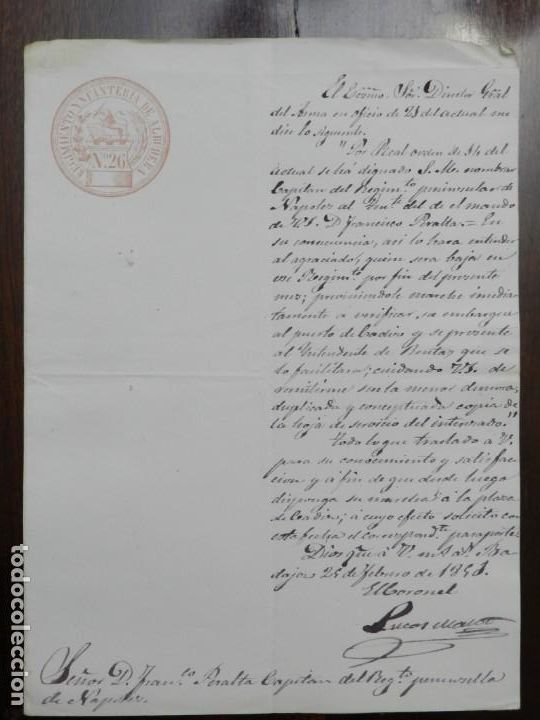 REGIMIENTO YNFANTERIA DE ALBUHERA
Nº 26
El Excmo. Sor. Director Gral
del Arma en oficio de 21 del actual me
dice lo siguiente.
"Por Real orden de 14 del
actual se ha dignado S. M. nombrar
Capitan del Regimto. peninsular de
Napoles al Tente. del de el mando
de V.S. D. Francisco Peralta = En
su consecuencia, asi lo hará entender
al agraciado, quien será baja en
ese Regimto. por fin del presente
mes; previniendole marche inmedia
tamente a verificar su embarque
al puerto de Cadiz y se presente
al Yntendente de Rentas que se
lo facilitara; cuidando V.S. de
remitirme sin la menor demora,
duplicada y conceptuada copia de
la hoja de servicio del interesado."
Todo lo que traslado a V.
para su conocimiento y satisfac
cion y á fin de que desde luego
disponga su marcha á la plaza
de Cadiz; á cuyo efecto solicito con
esta fecha el correspondte. pasaporte.
Dios gue. á V. ms. as. Ba
dajoz 25 de Febrero de 1853.
El Coronel
Lucas
Señor D. Franco. Peralta Capitan del Regto. peninsular
de Napoles.
todocoleccion